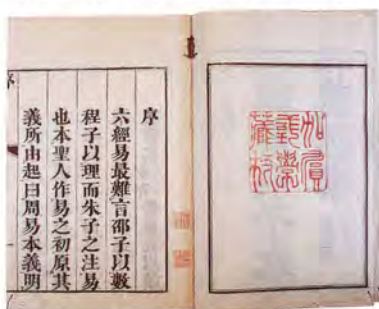 加
義學
藏板
序
六經易最難言邵子以數
程子以理而朱子之注易
也本聖人作易之初原其
義所由起曰周易本義明
序